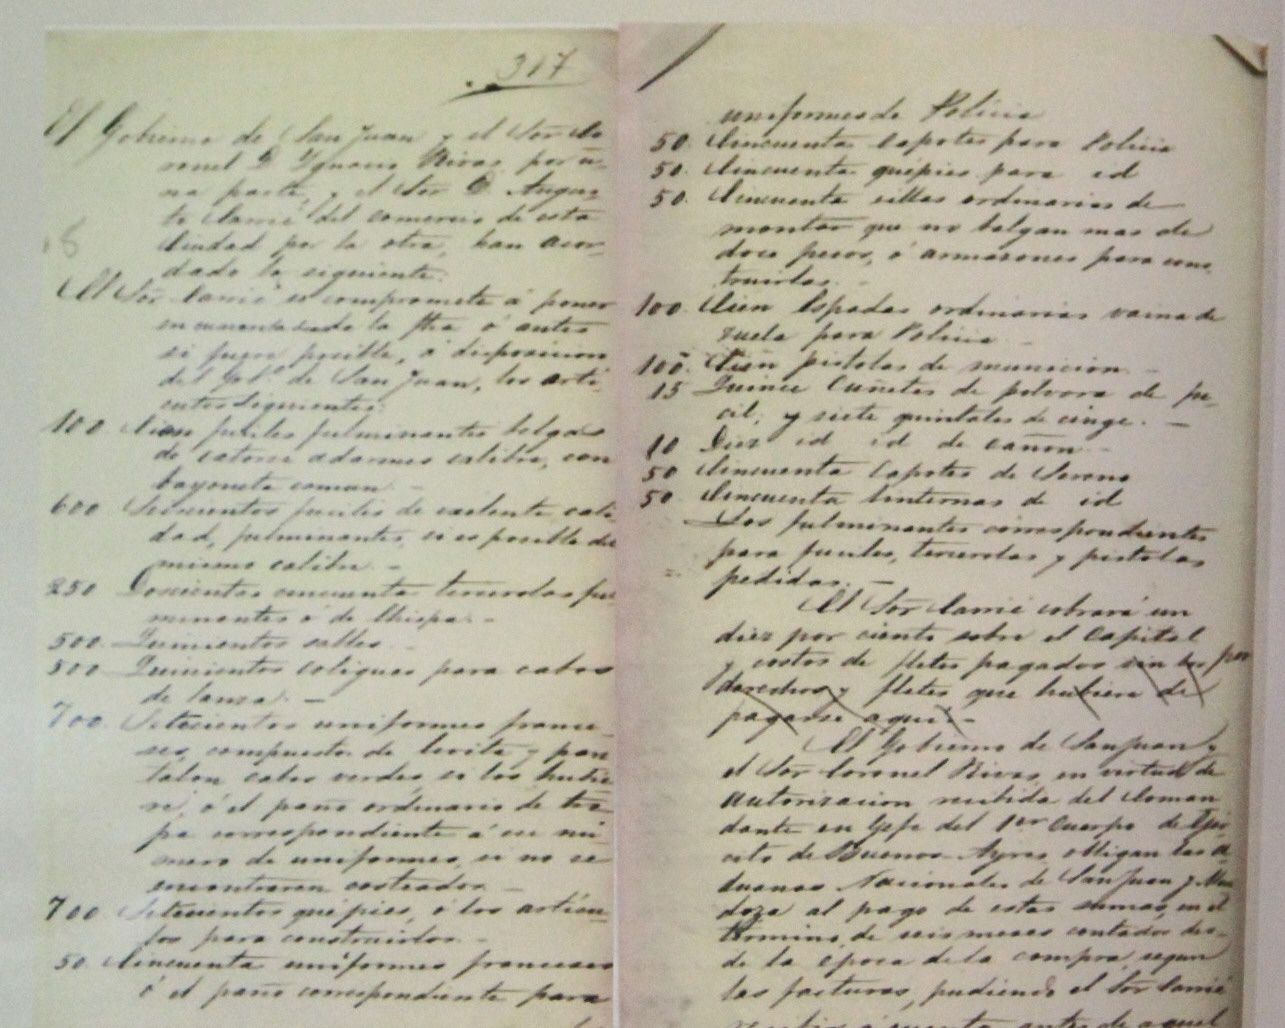 317
El Gobierno de San Juan y el Sor Co
ronel D. Ygnacio Rivas por u-
na parte, y el Sor D. Augus-
to Carrié del comercio de esta
Ciudad por la otra, han acor-
dado lo siguiente.
El Sor Carrié se compromete á poner
en cuarenta la fha ó antes
si fuere posible, á disposicion
del Gob.o de San Juan, los arti-
culos siguientes:
100 Cien fusiles fulminantes belgas
de catorce adarmes calibre, con
bayoneta comun. -
600 Seiscientos fusiles de exelente cali
dad, fulminantes, si es posible del
mismo calibre. -
250 Doscientos cincuenta tercerolas ful
minantes ó de Chispa. -
500. Quinientos sables.
500 Quinientos coligues para cabos
de lanza. -
700. Setecientos uniformes france-
ses, compuesto de levita y pan
talon cabos verdes, si los hubie
re, ó el paño ordinario de tro
pa correspondiente á ese nú
mero de uniformes, si no se
encontraren costeados. -
700 Setecientos quépies, ó los artícu-
los para construirlos. -
50. Cincuenta uniformes franceses
ó el paño correspondiente para
uniformes de Policia
50. Cincuenta Capotes para Policia
50. Cincuenta quépies para id
50. Cincuenta sillas ordinarias de
montar que no balgan mas de
doce pesos, ó armasones para cons
truirlas. -
100 Cien Espadas ordinarias vaina de
suela para Policia -
100. Cien pistolas de municion. -
15 Quince Cuñetes de polvora de fu-
cil; y siete quintales de
10 Diez id id de cañon. -
50 Cincuenta Capotes de Sereno
50. Cincuenta linternas de id
Los fulminantes correspondientes
para fusiles, tercerolas y pistolas
pedidas. -
El Sor Carrié cobrará un
diez por ciento sobre el Capital
y costos de fletes pagados sin los por
derechos y fletes que hubiera de
pagarse aquí. -
El Gobierno de San Juan y
el Sor Coronel Rivas, en virtud de
autorizacion recibida del Coman
dante en Gefe del 1er Cuerpo de Ejer
cito de Buenos Ayres obligan las A-
duanas Nacionales de San Juan y Men
doza al pago de estas sumas, en el
término de seis meses contados des-
de la época de la compra, segun
las facturas, pudiendo el Sor Carrié
recibir á cuenta antes de aquel